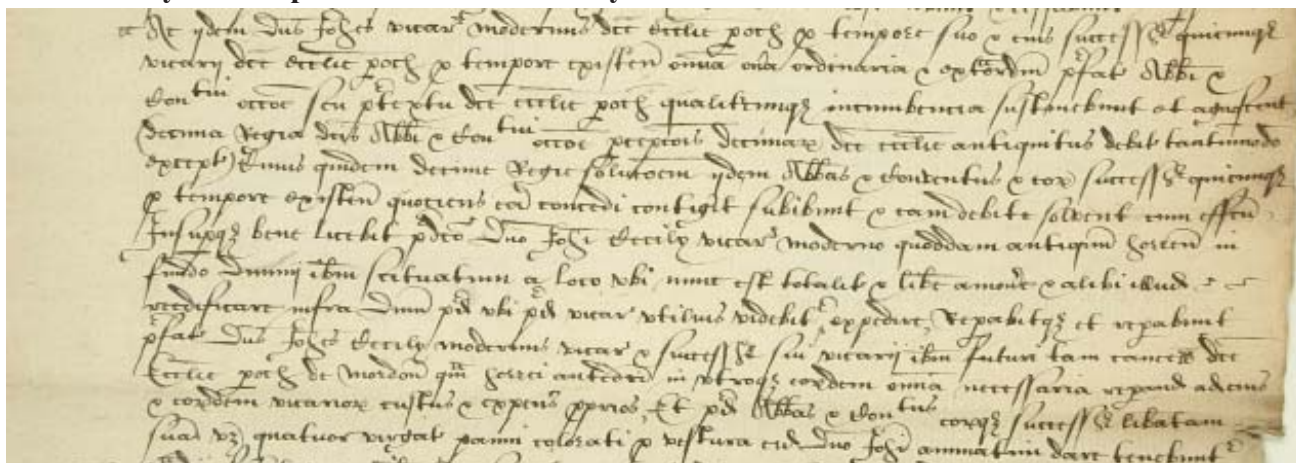 Ac ijdem Dns Johes vicar modernus dce ecclie poch p tempore suo & eius successor quicumqz
vicarij dce ecclie poch p tempore existen omia ona ordinaria & extraordin pfat Abbi &
Contui occoe seu ptextu dce ecclie poch qualitcumqz incumbencia sustinebunt et agnoscent
decima Regia dcis Abbi & Contui occoe pcepcois decimar dce ecclie antiquitus debit tantumodo
except) cuius quidem decime Regie solucoem ijdem Abbas & Conventus & eor successor quicumqz
p tempore existen quociens ea concedi contigit subibunt & eam debite solvent cum effcu
Insupqz bene licebit pdco Dno Johi Cecily vicar moderno quoddam antiqum horreu in
fundo Dminij ibm scituatum a loco vbi nunc est totalit & libe amove & alibi illud
reedificare infra Dnm pd vbi pd vicar vtilius videbit expedire, Repabitqz et repabunt
pfat Dns Johes Cecily modernus vicar & successor sui vicarij ibm futuri tam cancell dce
Ecclie poch de Mordon qm horrei antedci in vtroqz eordem omia necessaria repand ad eius
& eordem vicarior custus & expens pprios, Et pd Abbas & Contus eorqz successor libatam
sua vz quatuor virgat panni colorati p vestura eid Dno Johi annuatim dare tenebunt